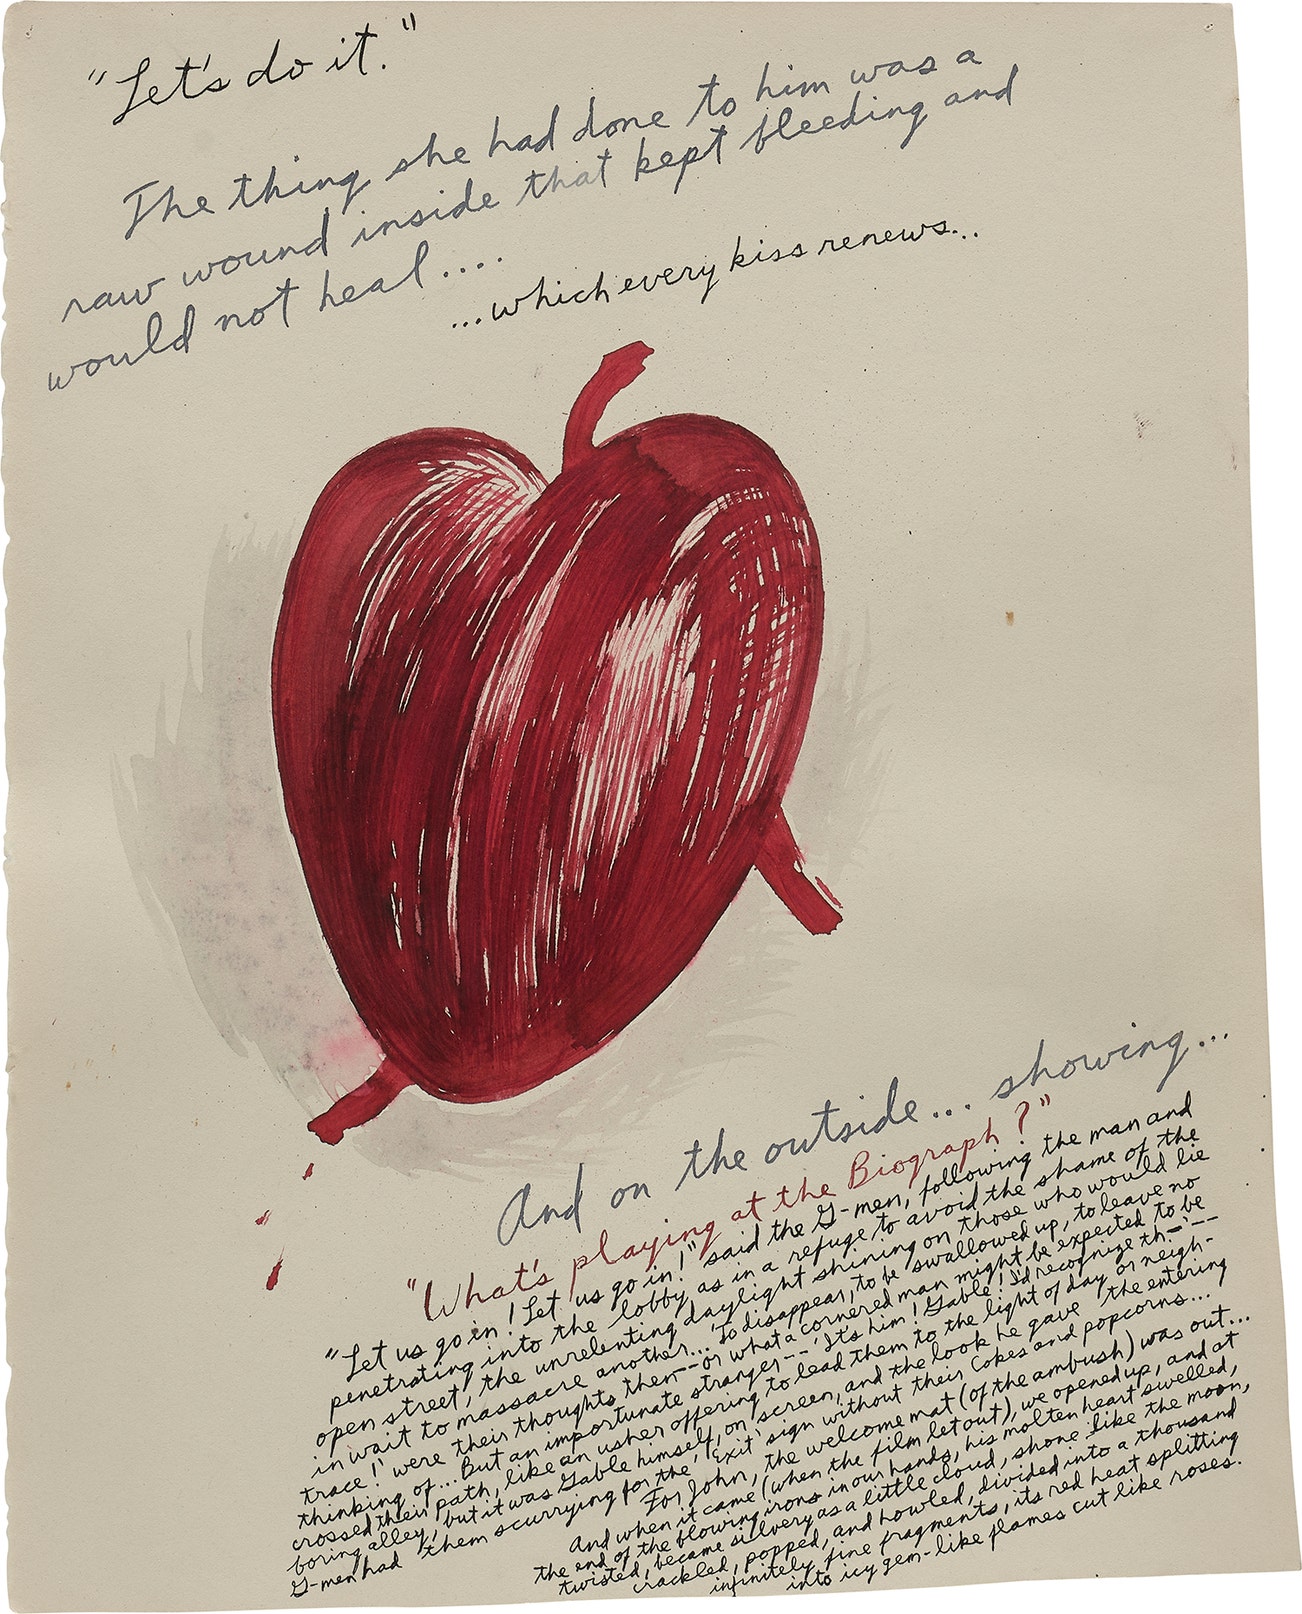 "Let's do it."
The thing she had done to him was a
raw wound inside that kept bleeding and
would not heal....
...which every kiss renews...
And on the outside... showing...
"What's playing at the Biograph?"
"Let us go in! Let us go in!" said the G-men, following the man and
penetrating into the lobby as in a refuge to avoid the shame of the
open street, the unrelenting daylight shining on those who would lie
in wait to massacre another... 'To disappear, to be swallowed up, to leave no
trace!' were their thoughts then--or what a cornered man might be expected to be
thinking of... But an importunate stranger--'It's him! Gable! I'd recognize th-'--
crossed their path, like an usher offering to lead them to the light of day or neigh-
boring alley, but it was Gable himself, on screen, and the look he gave the entering
G-men had them scurrying for the 'Exit' sign without their Cokes and popcorns...
For John, the welcome mat (of the ambush) was out...
And when it came (when the film let out), we opened up, and at
the end of the blowing irons in our hands, his molten heart swelled,
twisted, became silvery as a little cloud, shone like the moon,
crackled, popped, and howled, divided into a thousand
infinitely fine fragments, its red heat splitting
into icy gem-like flames cut like roses.